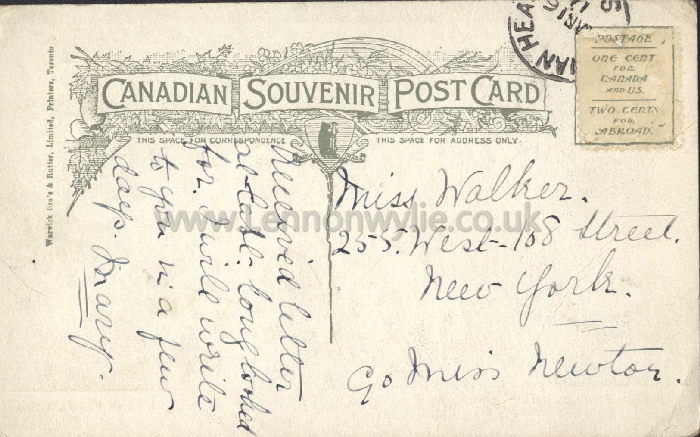 CANADIAN SOUVENIR POST CARD
THIS SPACE FOR CORRESPONDENCE
THIS SPACE FOR ADDRESS ONLY.
Warwick Bro's & Rutter, Limited, Printers, Toronto
POSTAGE
ONE CENT
FOR
CANADA
AND U.S.
TWO CENTS
FOR
ABROAD.
MAN HEA
Received letter
at last - long looked
for. I will write
to you in a few
days. Mary.
Miss Walker.
255. West-108 Street.
New York.
c/o Miss Newton.
www.lennonwylie.co.uk